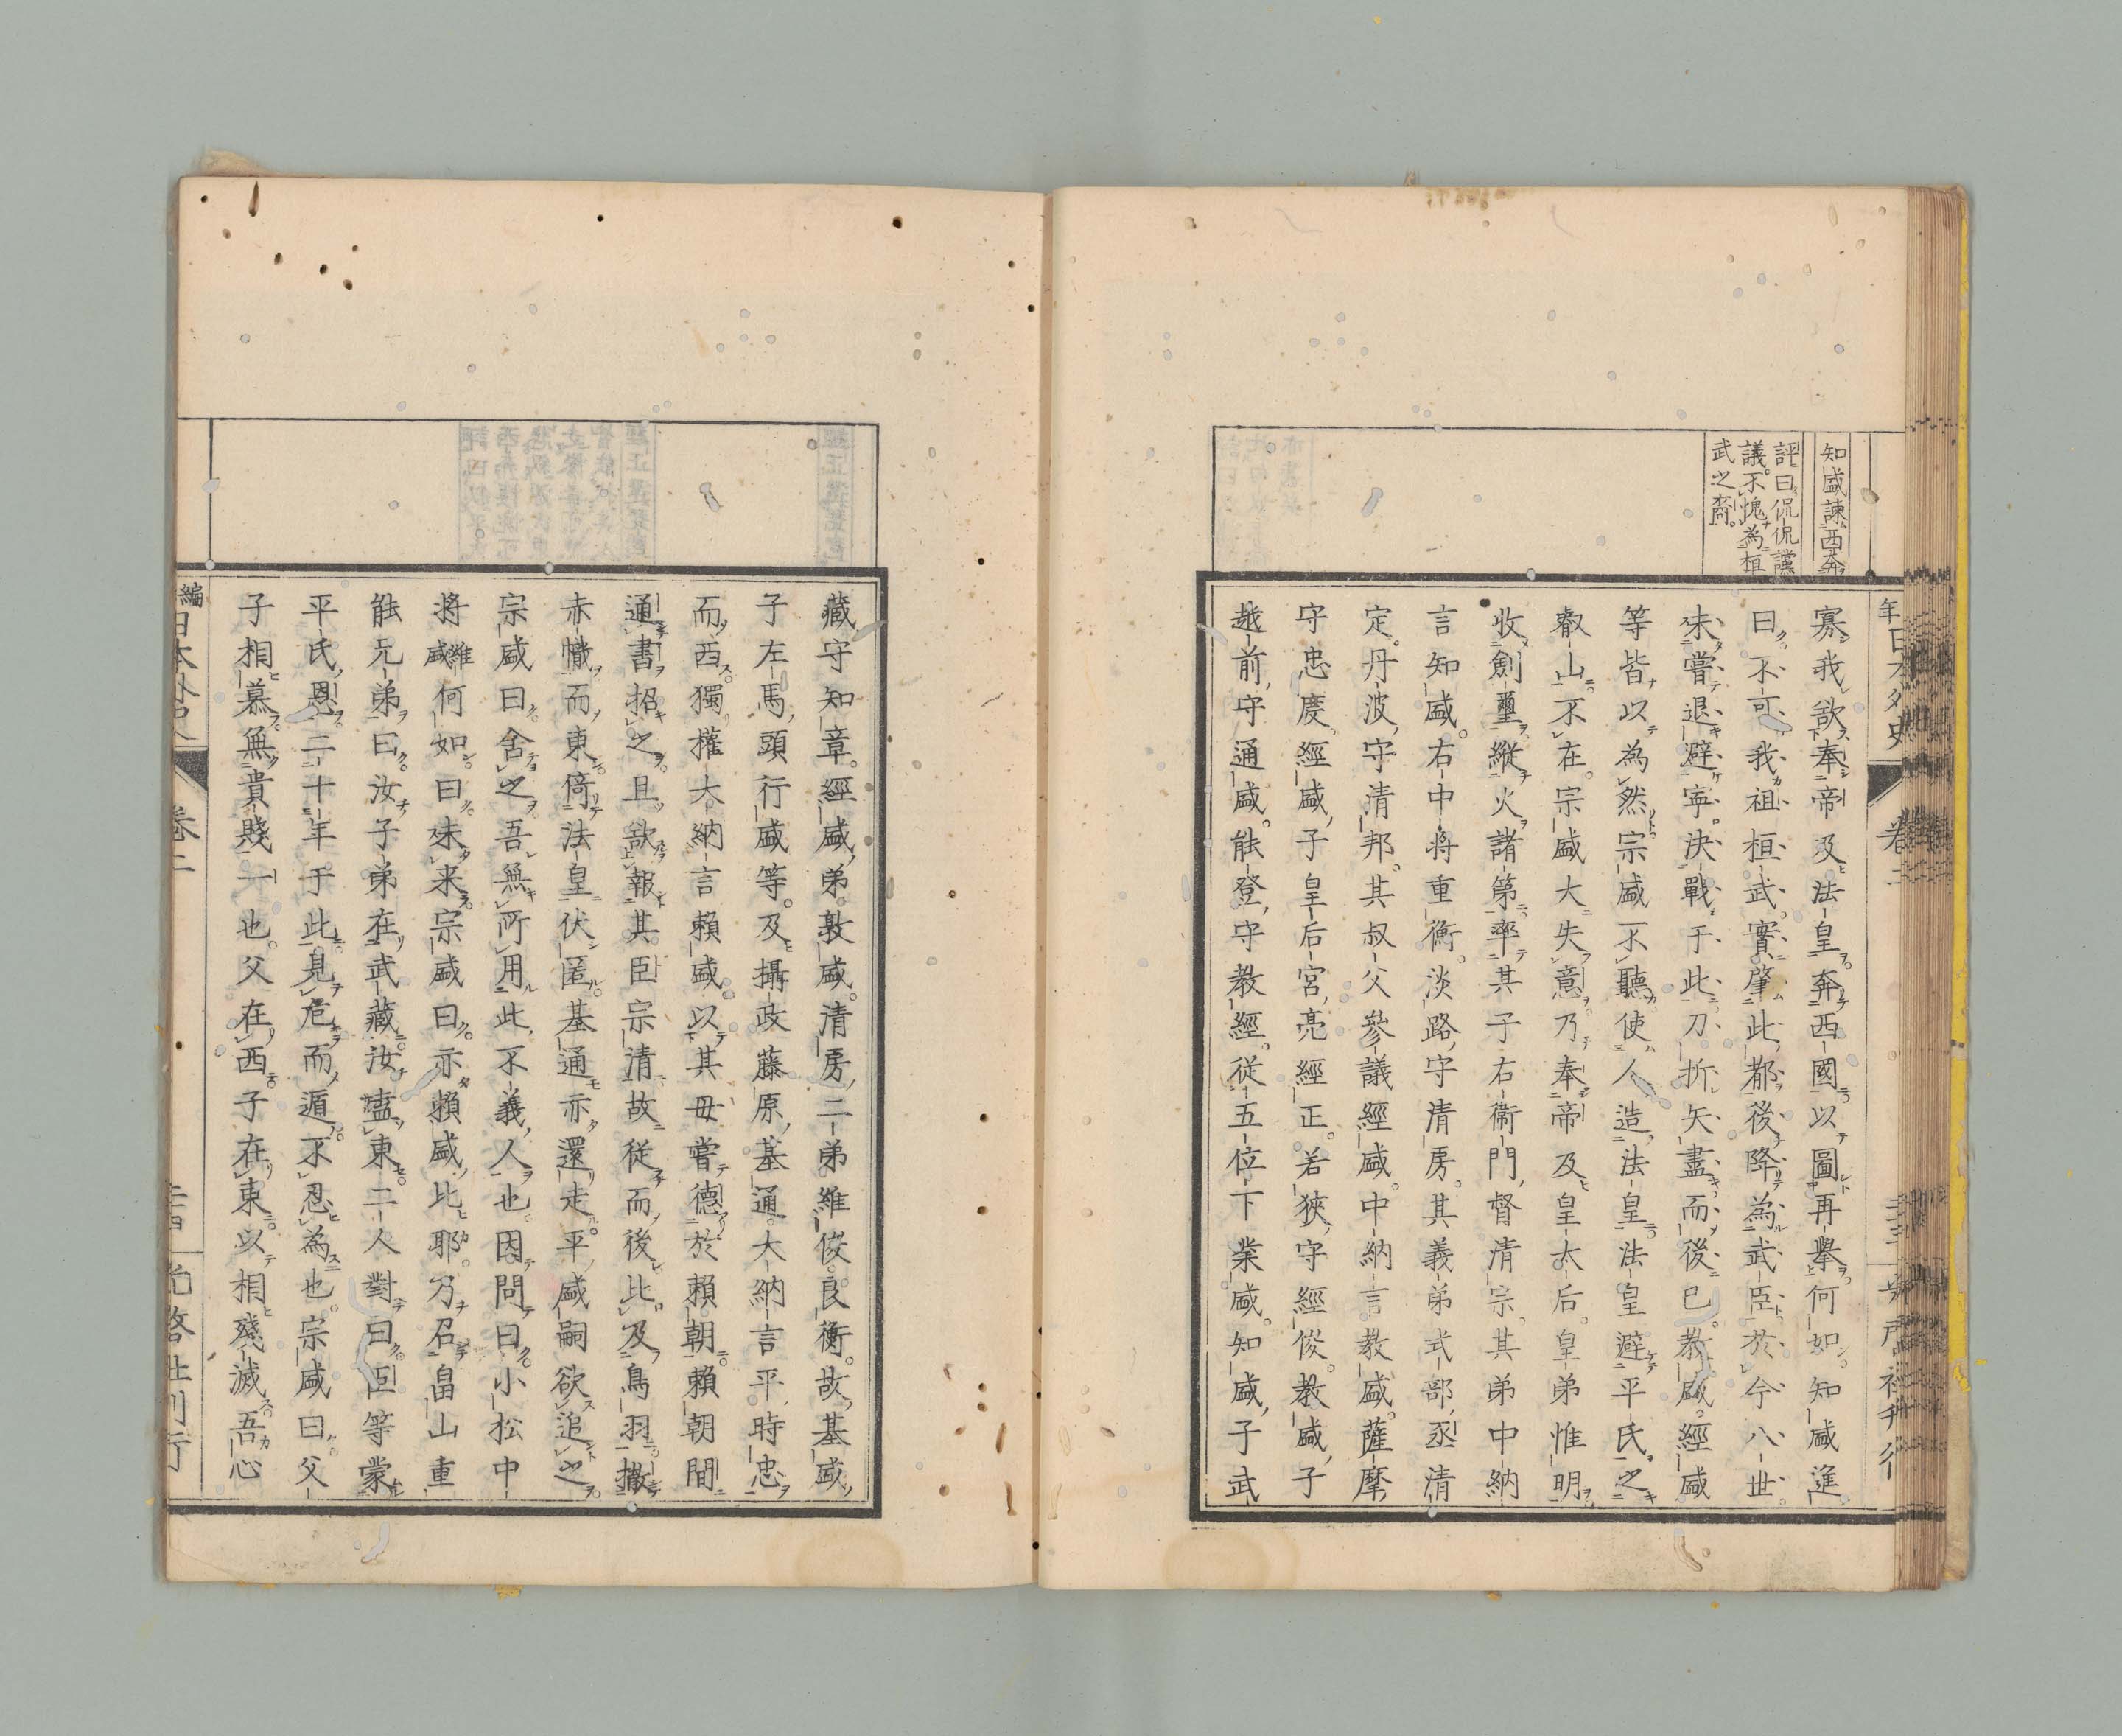 知盛諫西奔
評曰侃侃讜
議不愧為桓
武之裔
寡我欲奉帝及法皇奔西國以圖再擧何如知盛進
曰不可我祖桓武實肇此都後降為武臣於今八世
未嘗退避寧決戰于此刀折矢盡而後已教盛經盛
等皆以為然宗盛不聽使人造法皇法皇避平氏之
叡山不在宗盛大失意乃奉帝及皇太后皇弟惟明
收劍璽縱火諸第率其子右衞門督清宗其弟中納
言知盛右中將重衡淡路守清房其義弟式部丞清
定丹波守清邦其叔父參議經盛中納言教盛薩摩
守忠度經盛子皇后宮亮經正若狹守經俊教盛子
越前守通盛能登守教經從五位下業盛知盛子武
藏守知章經盛弟敦盛清房二弟維俊良衡故基盛
子左馬頭行盛等及攝政藤原基通大納言平時忠
而西獨權大納言賴盛以其母嘗德於賴朝賴朝間
通書招之且欲報其臣宗清故從而後比及鳥羽撒
赤幟而東倚法皇伏匿基通亦還走平盛嗣欲追之
宗盛曰舍之吾無所用此不義人也因問曰小松中
將維盛何如曰未来宗盛曰亦賴盛比耶乃召畠山重
能兄弟曰汝子弟在武藏汝盍東二人對曰臣等蒙
平氏恩二十年于此見危而遁不忍為也宗盛曰父
子相慕無貴賤一也父在西子在東以相殘滅吾心
編
日本外史
卷二